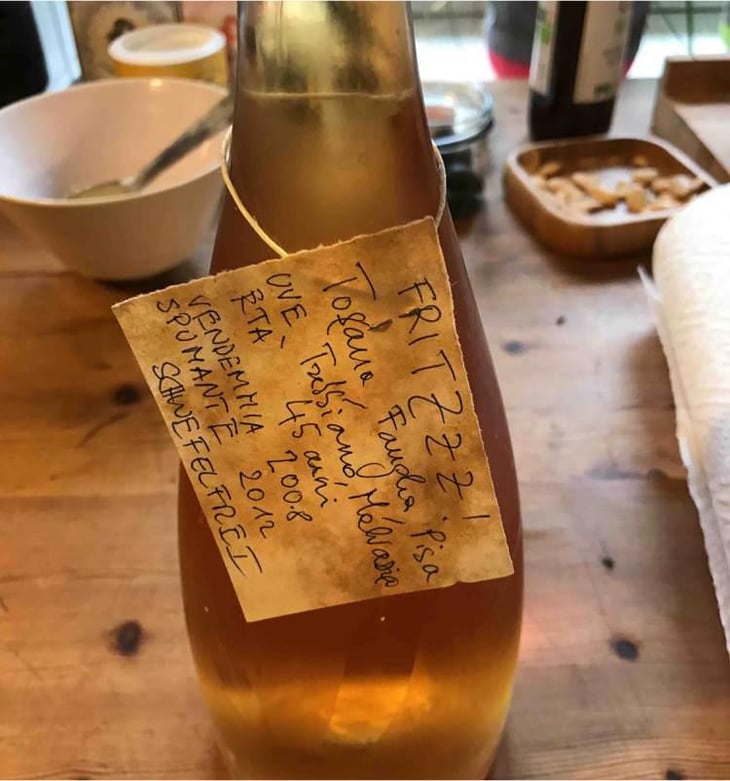 FRITZZZ!
Toscana Fauglia. Pisa
UVE: Trebbiano, Malvasia
ETÀ 45 anni
VENDEMMIA 2008
SPUMANTE 2012
SCHWEFELFREI